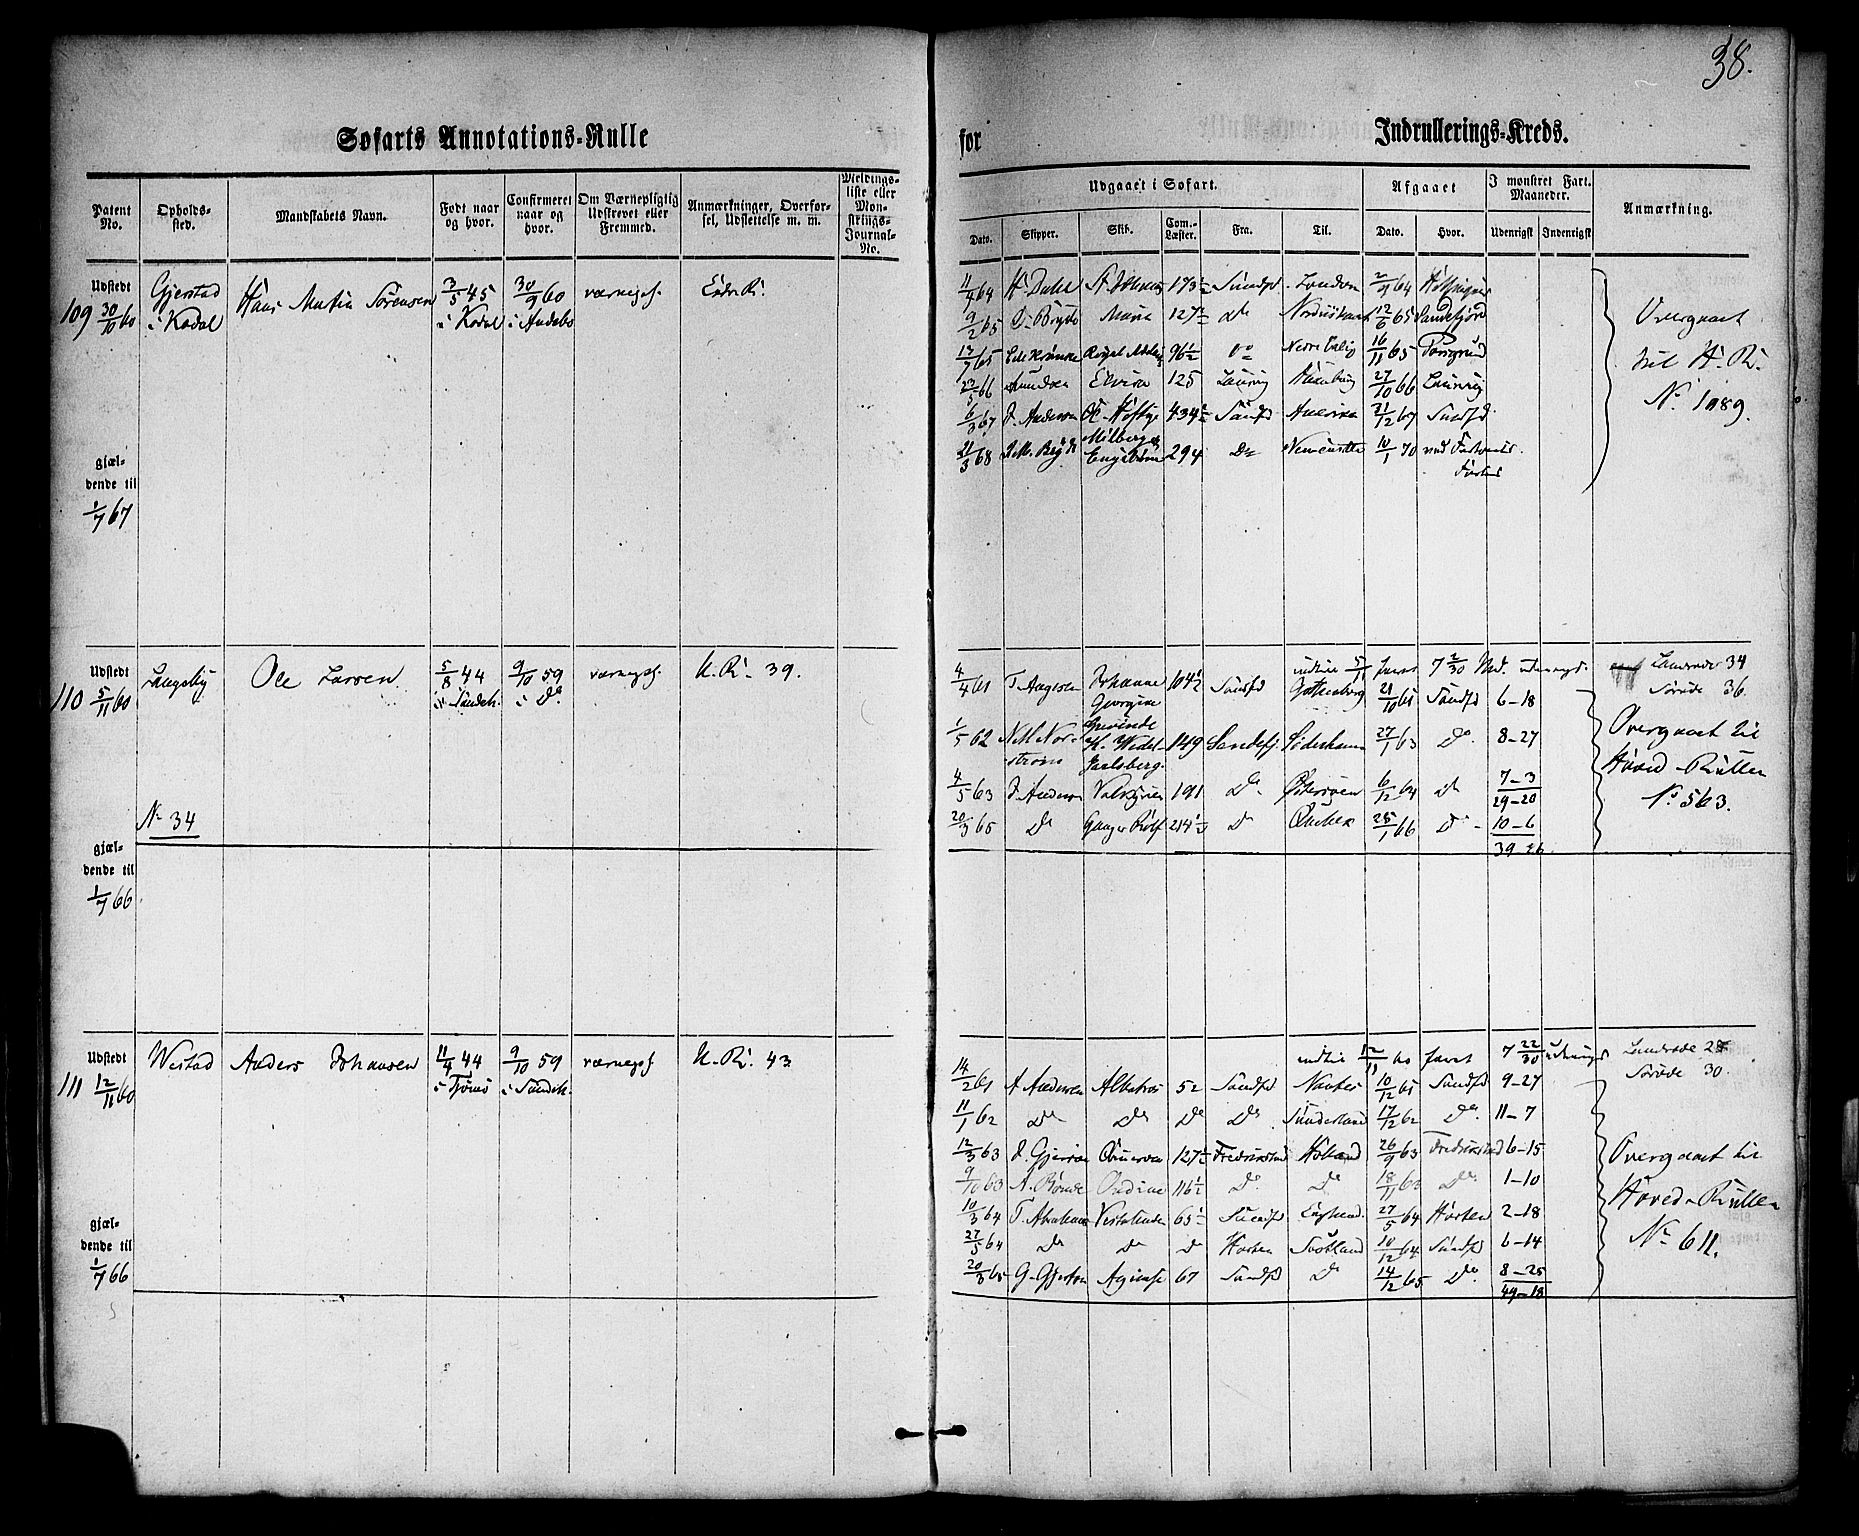 38.
Søfarts Annotations-Rulle for Indrullerings-Kreds.
Patent No. Opholds-sted. Mandskabets Navn. Født naar og hvor. Confirmeret naar og hvor. Om Værnepligtig Udskrevet eller Fremmed. Anmærkninger, Overførsel, Udslettelse m. m. Meldingsliste eller Mønstrings-Journal-No.
Udgaaet i Søfart. Afgaaet I mønstret Fart. Maaneder. Anmærkning.
Dato. Skipper. Skib. Com.-Læster. Fra. Til. Dato. Hvor. Udenrigst Indenrigst
109 Udstedt 30/10 60 Gjerstad i Kodal Hans Martin Sørensen 3/5 45 i Kodal 30/9 60 i Andebo værnepl.
gjældende til 1/7 67
11/4 64 H. Dahl 173 Sandfd London 2/9 64
9/2 65 Maria 127 do 12/6 65 Sandefjord
13/7 65 96½ do 16/11 65 Porsgrund
5 66 Elvira 125 Laurvig Hamburg 27/10 66 Laurvig
6/3 67 J. Andersen 434 Sandfd America 21/12 67 Sandfd
21/3 68 J. M. Bryde Engstrøm 294 Do 10/1 70
Overgaaet til H. R. No. 1089.
110 Udstedt 5/11 60 Langeby Ole Larsen 5/8 44 i Sandeh. 9/10 59 i Do værnepl. U. R. 39.
No 34
gjældende til 1/7 66
indtil 5/11 faret 7 2/30 Md. udenrigs. Landrode 34
Sørode 36.
4/4 61 T. Angersen Johanne Georgine 104½ Sandfd Gothenborg 21/10 61 Sandfd 6-18
1/5 62 N. M. Nordstrøm Grevinde K. Wedel-Jarlsberg. 149 Sandefj. Søderhamn 27/1 63 Do. 8-27
4/5 63 J. Andersen Valkyrien 191 Do Østersøen 6/12 64 do 7-3
29-20
20/3 65 Do Ganger Rolf 214½ Do Qvebek 25/1 66 Do 10-6
39-26
Overgaaet til Hoved-Rullen No 563.
111 Udstedt 12/11 60 Westad Anders Johansen 11/4 44 i Tjømø 9/10 59 i Sandeh. værnepl. U. R. 43
gjældende til 1/7 66
indtil 12/11 60 faret 7 22/30 udenrigs Landrode 28
Sørode 30.
14/2 61 A. Andersen Albatros 52 Sandfd Nantes 10/12 61 Sandfd 9-27
11/1 62 Do Do Do Do Sunderland 17/12 62 Do. 11-7
12/3 63 127½ Fredrikstad Holland 26/9 63 Fredrikstad 6-15
9/10 63 Undine 116½ Do. Do 18/11 63 Do. 1-10
10/3 64 T. Abrahamsen Vestalinden 65½ Sandfd England. 27/5 64 Horten 2-18
27/5 64 do do do Horten Skotland 10/12 64 Sandfd 6-14
20/3 65 G. Gjertsen 67 Sandfd Do 14/12 65 Do. 8-25
49-18
Overgaaet til Hoved-Rullen No 611.